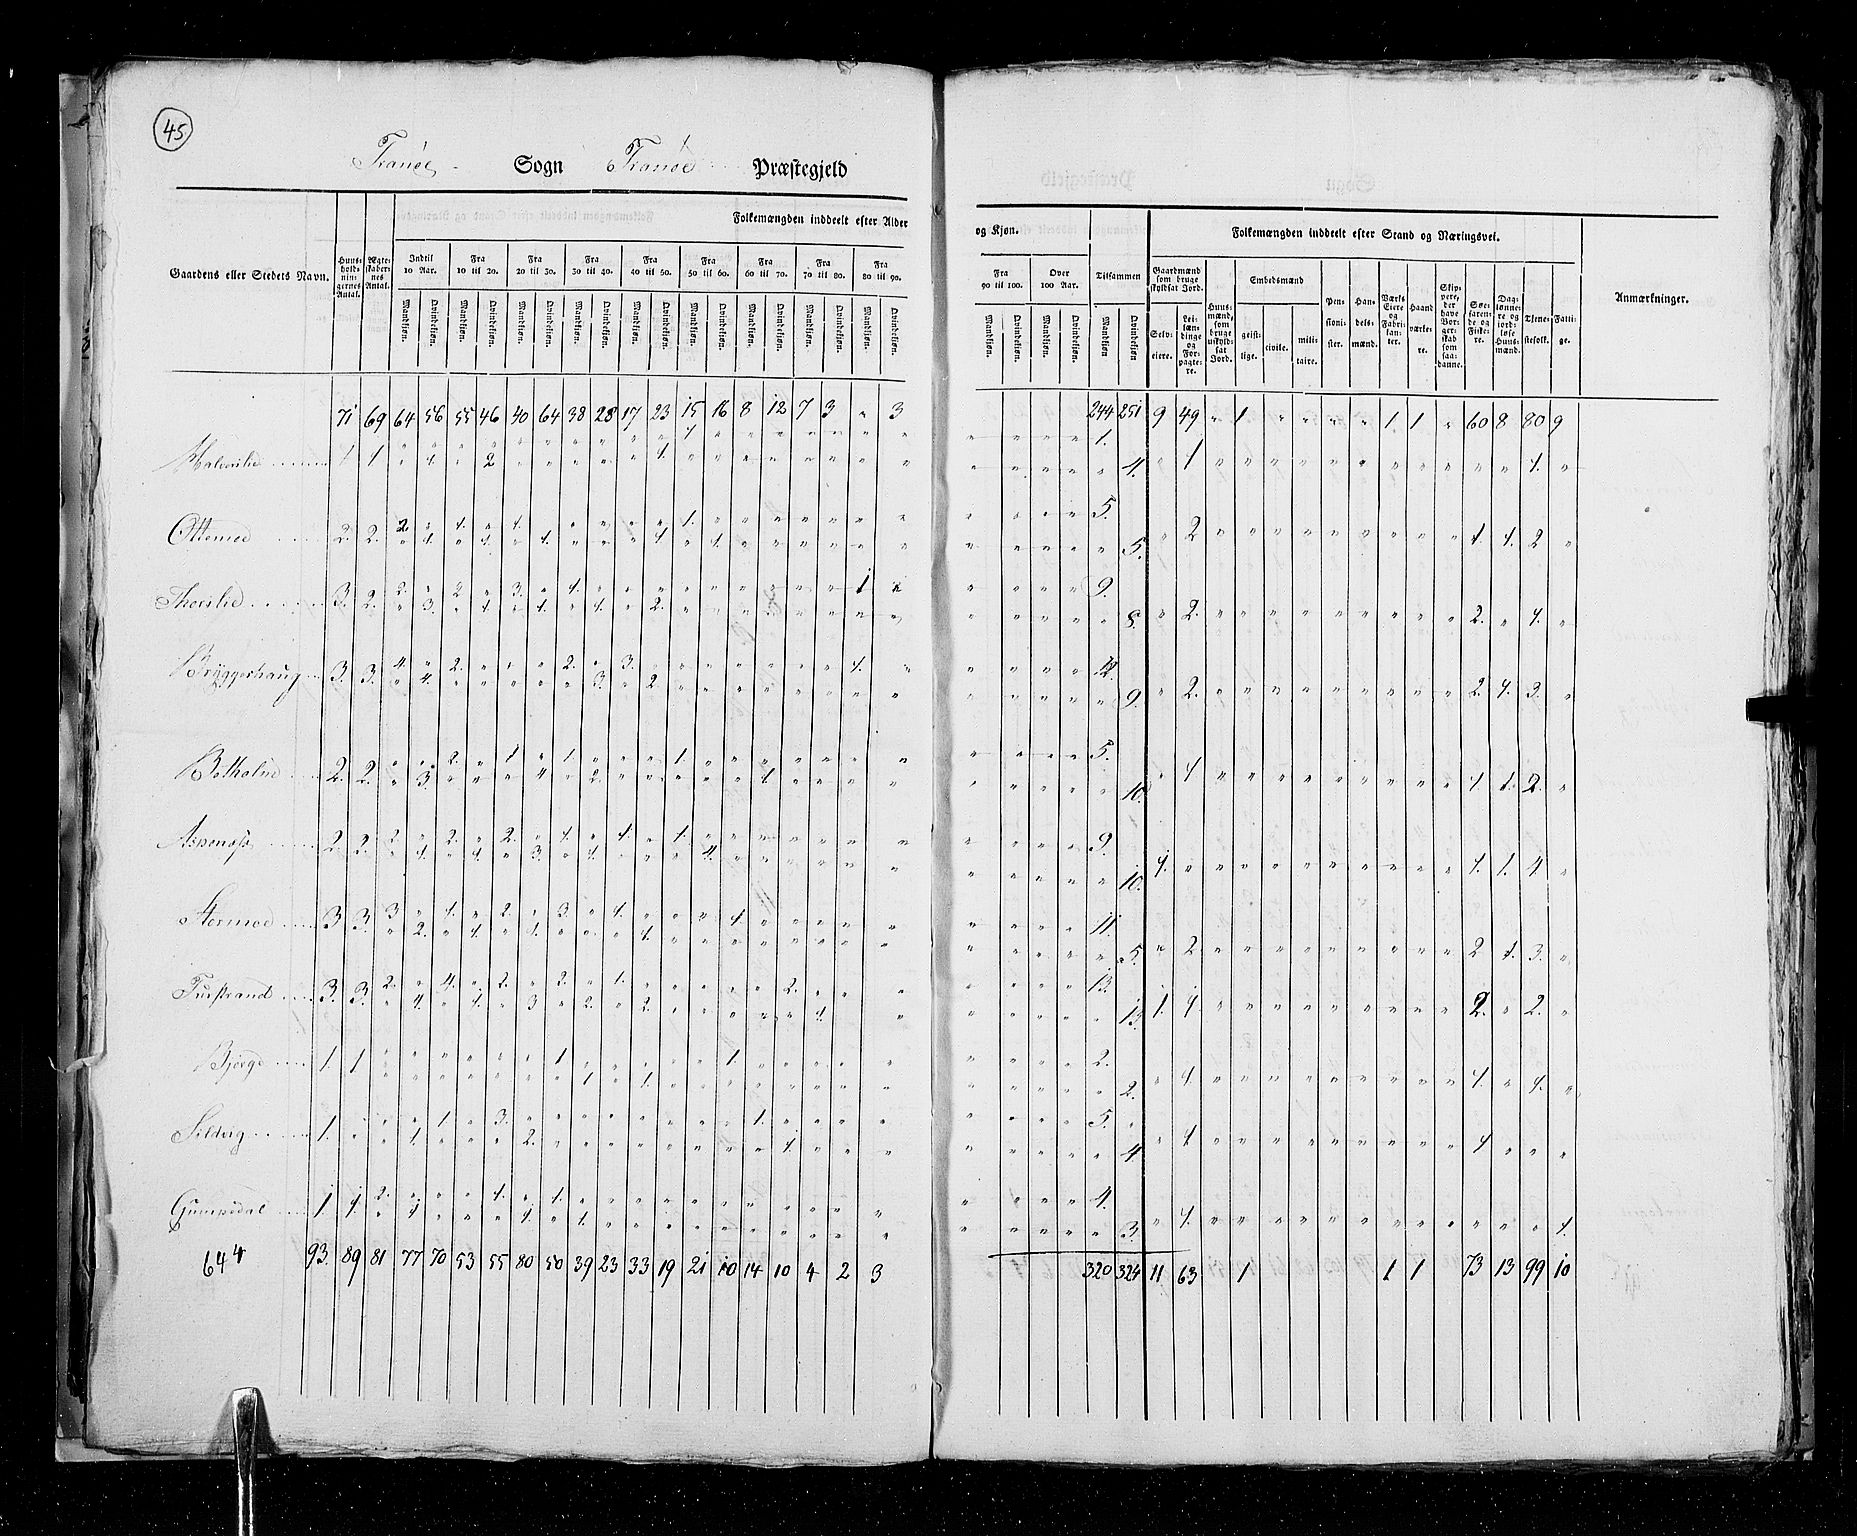 45
Tranöe Sogn Tranöe Præstegjeld
Gaardens eller Stedets Navn.
Huusholdningernes Antal.
Ægteskabernes Antal.
Folkemængden inddeelt efter Alder og Kjøn.
Indtil 10 Aar. Fra 10 til 20. Fra 20 til 30. Fra 30 til 40. Fra 40 til 50. Fra 50 til 60. Fra 60 til 70. Fra 70 til 80. Fra 80 til 90. Fra 90 til 100. Over 100 Aar. Tilsammen
Mandkjøn. Qvindekjøn.
Folkemængden inddeelt efter Stand og Næringsvei.
Gaardmænd som bruge skyldsat Jord.
Selveiere. Leilændinge og Forpagtere.
Huusmænd, som bruge uskyldsat Jord.
Embedsmænd
geistlige. civile. militaire.
Pensionister.
Handelsmænd.
Værks Eiere og Fabrikanter.
Haandværkere.
Skippere, der have Borgerskab som saadanne.
Søefarende og Fiskere.
Daglønnere og jordløse Huusmænd.
Tjenestefolk.
Fattige.
Anmærkninger.
71 69 64 56 55 46 40 64 38 28 17 23 15 16 8 12 7 3 " 3 244 251 9 49 " 1 " " " " 1 1 " 60 8 80 9
1 1 " 1. " 2 1. 1. 1. 4. 1 1.
Ottemoe 2. 2. 2. 1. 1. 1. 5.
1. 1. 1. 1. 1. 5. 2 1. 1. 2
3. 2. 2. 2. 3. 1. 1 9.
3. 1. 1. 1. 2. 8. 2. 2. 1.
Bryggerhaug 3. 3. 4. 2. 2. 3. 1. 12.
4. 3. 2. 9. 2. 2. 1. 3.
Botholne 2. 2. 2. 1 1. 1. 5.
3. 4 2. 1. 10. 1 1 1. 2.
2. 2. 2. 2. 2. 1. 1. 1. 9.
1. 1. 3. 1. 4. 10. 1. 1. 1. 4
Stormoe 3. 3. 3 1. 2. 3. 1. 1. 11.
2. 1. 1. 1. 5. 2 2 1. 3.
Turstrand 3. 3. 2. 4. 2. 2. 1. 2. 13.
4. 1. 3 2. 2. 1. 13. 1. 1. 2. 2.
Bjorge 1. 1 1 1. 2.
1 1. 2. 1. 1. 1.
Sildvig 1. " 1. 3. 1. 5.
1. 2. 1. 4. 1 1
Gumpedal 1. 1. 2. 1. 1. 4.
1 1. 1. 3. 1. 1.
644 93. 89 81 77 70 53 55 80 50 39 23 33 19 21 10 14 10 4 2 3 320 324 11 63 1 1 1 73 13 99 10